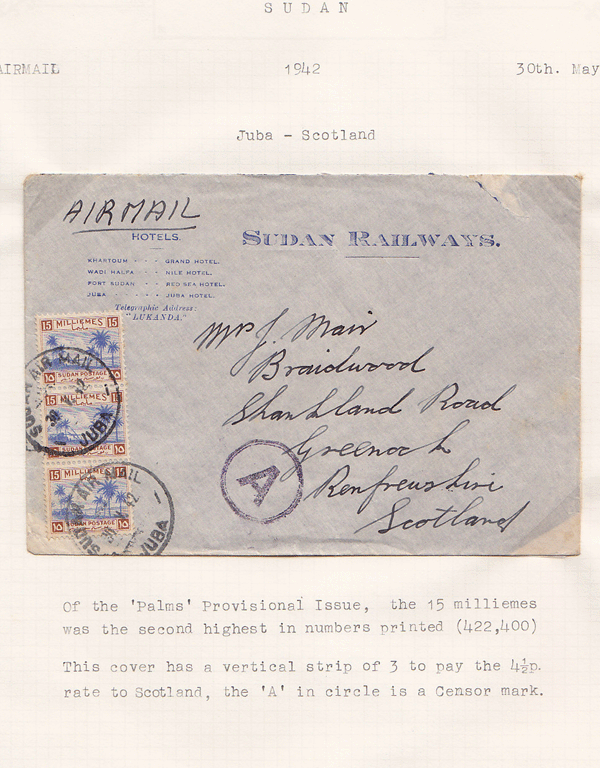 SUDAN
AIRMAIL 1942 30th. May
Juba - Scotland
AIRMAIL
HOTELS.
SUDAN RAILWAYS.
KHARTOUM · · · GRAND HOTEL.
WADI HALFA · · NILE HOTEL.
PORT SUDAN · · RED SEA HOTEL.
JUBA · · · · · JUBA HOTEL.
Telegraphic Address:
"LUKANDA."
Mrs J. Mair
Braidwood
Shankland Road
Greenock
Renfrewshire
Scotland
15 MILLIEMES 15
15 SUDAN POSTAGE 15
15 MILLIEMES 15
15 15
15 MILLIEMES 15
15 SUDAN POSTAGE 15
SUDAN AIR MAIL
JUBA
SUDAN AIR MAIL
JUBA
A
Of the 'Palms' Provisional Issue, the 15 milliemes
was the second highest in numbers printed (422,400)
This cover has a vertical strip of 3 to pay the 4½p.
rate to Scotland, the 'A' in circle is a Censor mark.